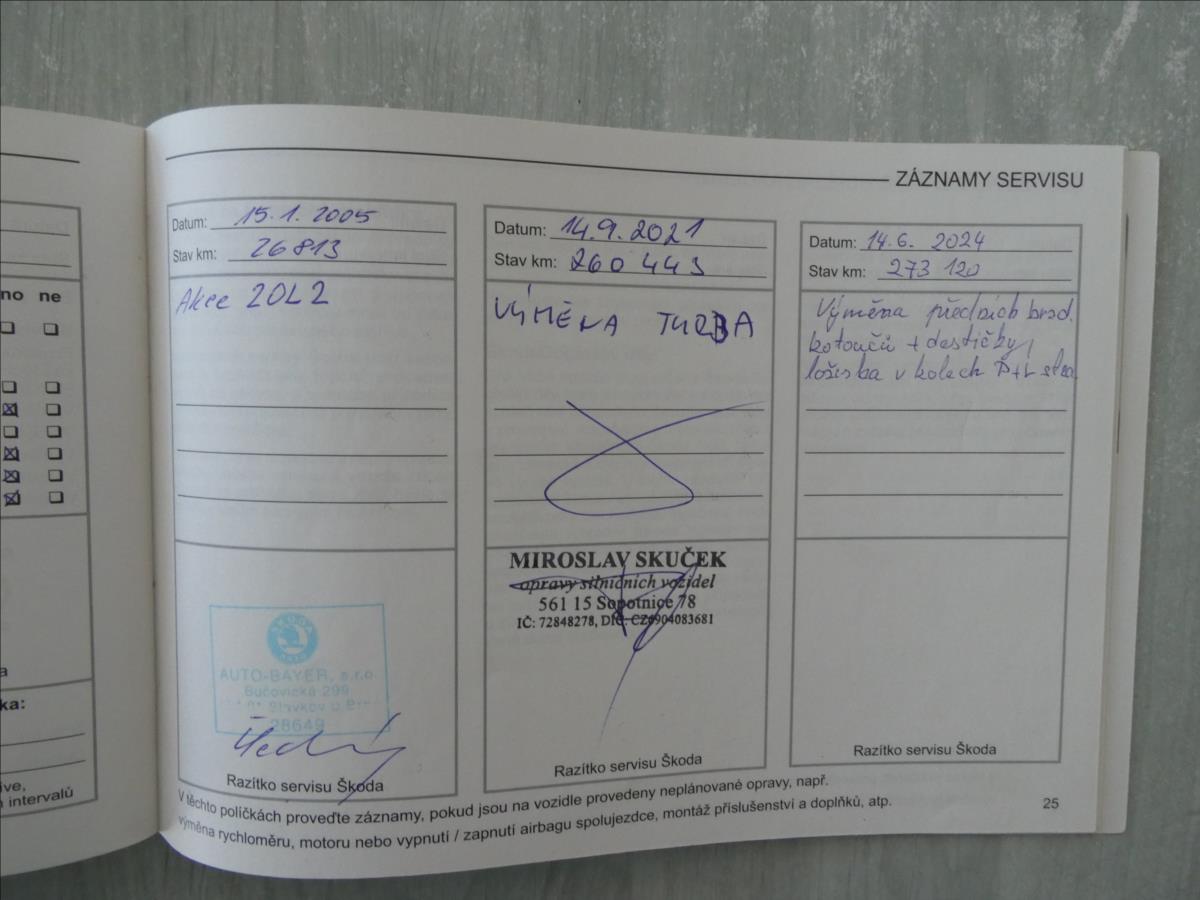 ZÁZNAMY SERVISU
no ne
ka:
ive,
intervalů
Datum: 15.1. 2005
Stav km: 26813
Akce 20L2
ŠKODA
AUTO
AUTO-BAYER, s.r.o.
Bučovická 299
Slavkov u Brna
28649
Razítko servisu Škoda
Datum: 14.9.2021
Stav km: 260 443
VÝMĚNA TURBA
MIROSLAV SKUČEK
opravy silničních vozidel
561 15 Sopotnice 78
IČ: 72848278, DIČ: CZ6904083681
Razítko servisu Škoda
Datum: 14.6. 2024
Stav km: 273 120
Výměna předních brzd.
kotoučů + destičky,
ložiska v kolech P+L
Razítko servisu Škoda
V těchto políčkách proveďte záznamy, pokud jsou na vozidle provedeny neplánované opravy, např.
výměna rychloměru, motoru nebo vypnutí / zapnutí airbagu spolujezdce, montáž příslušenství a doplňků, atp.
25